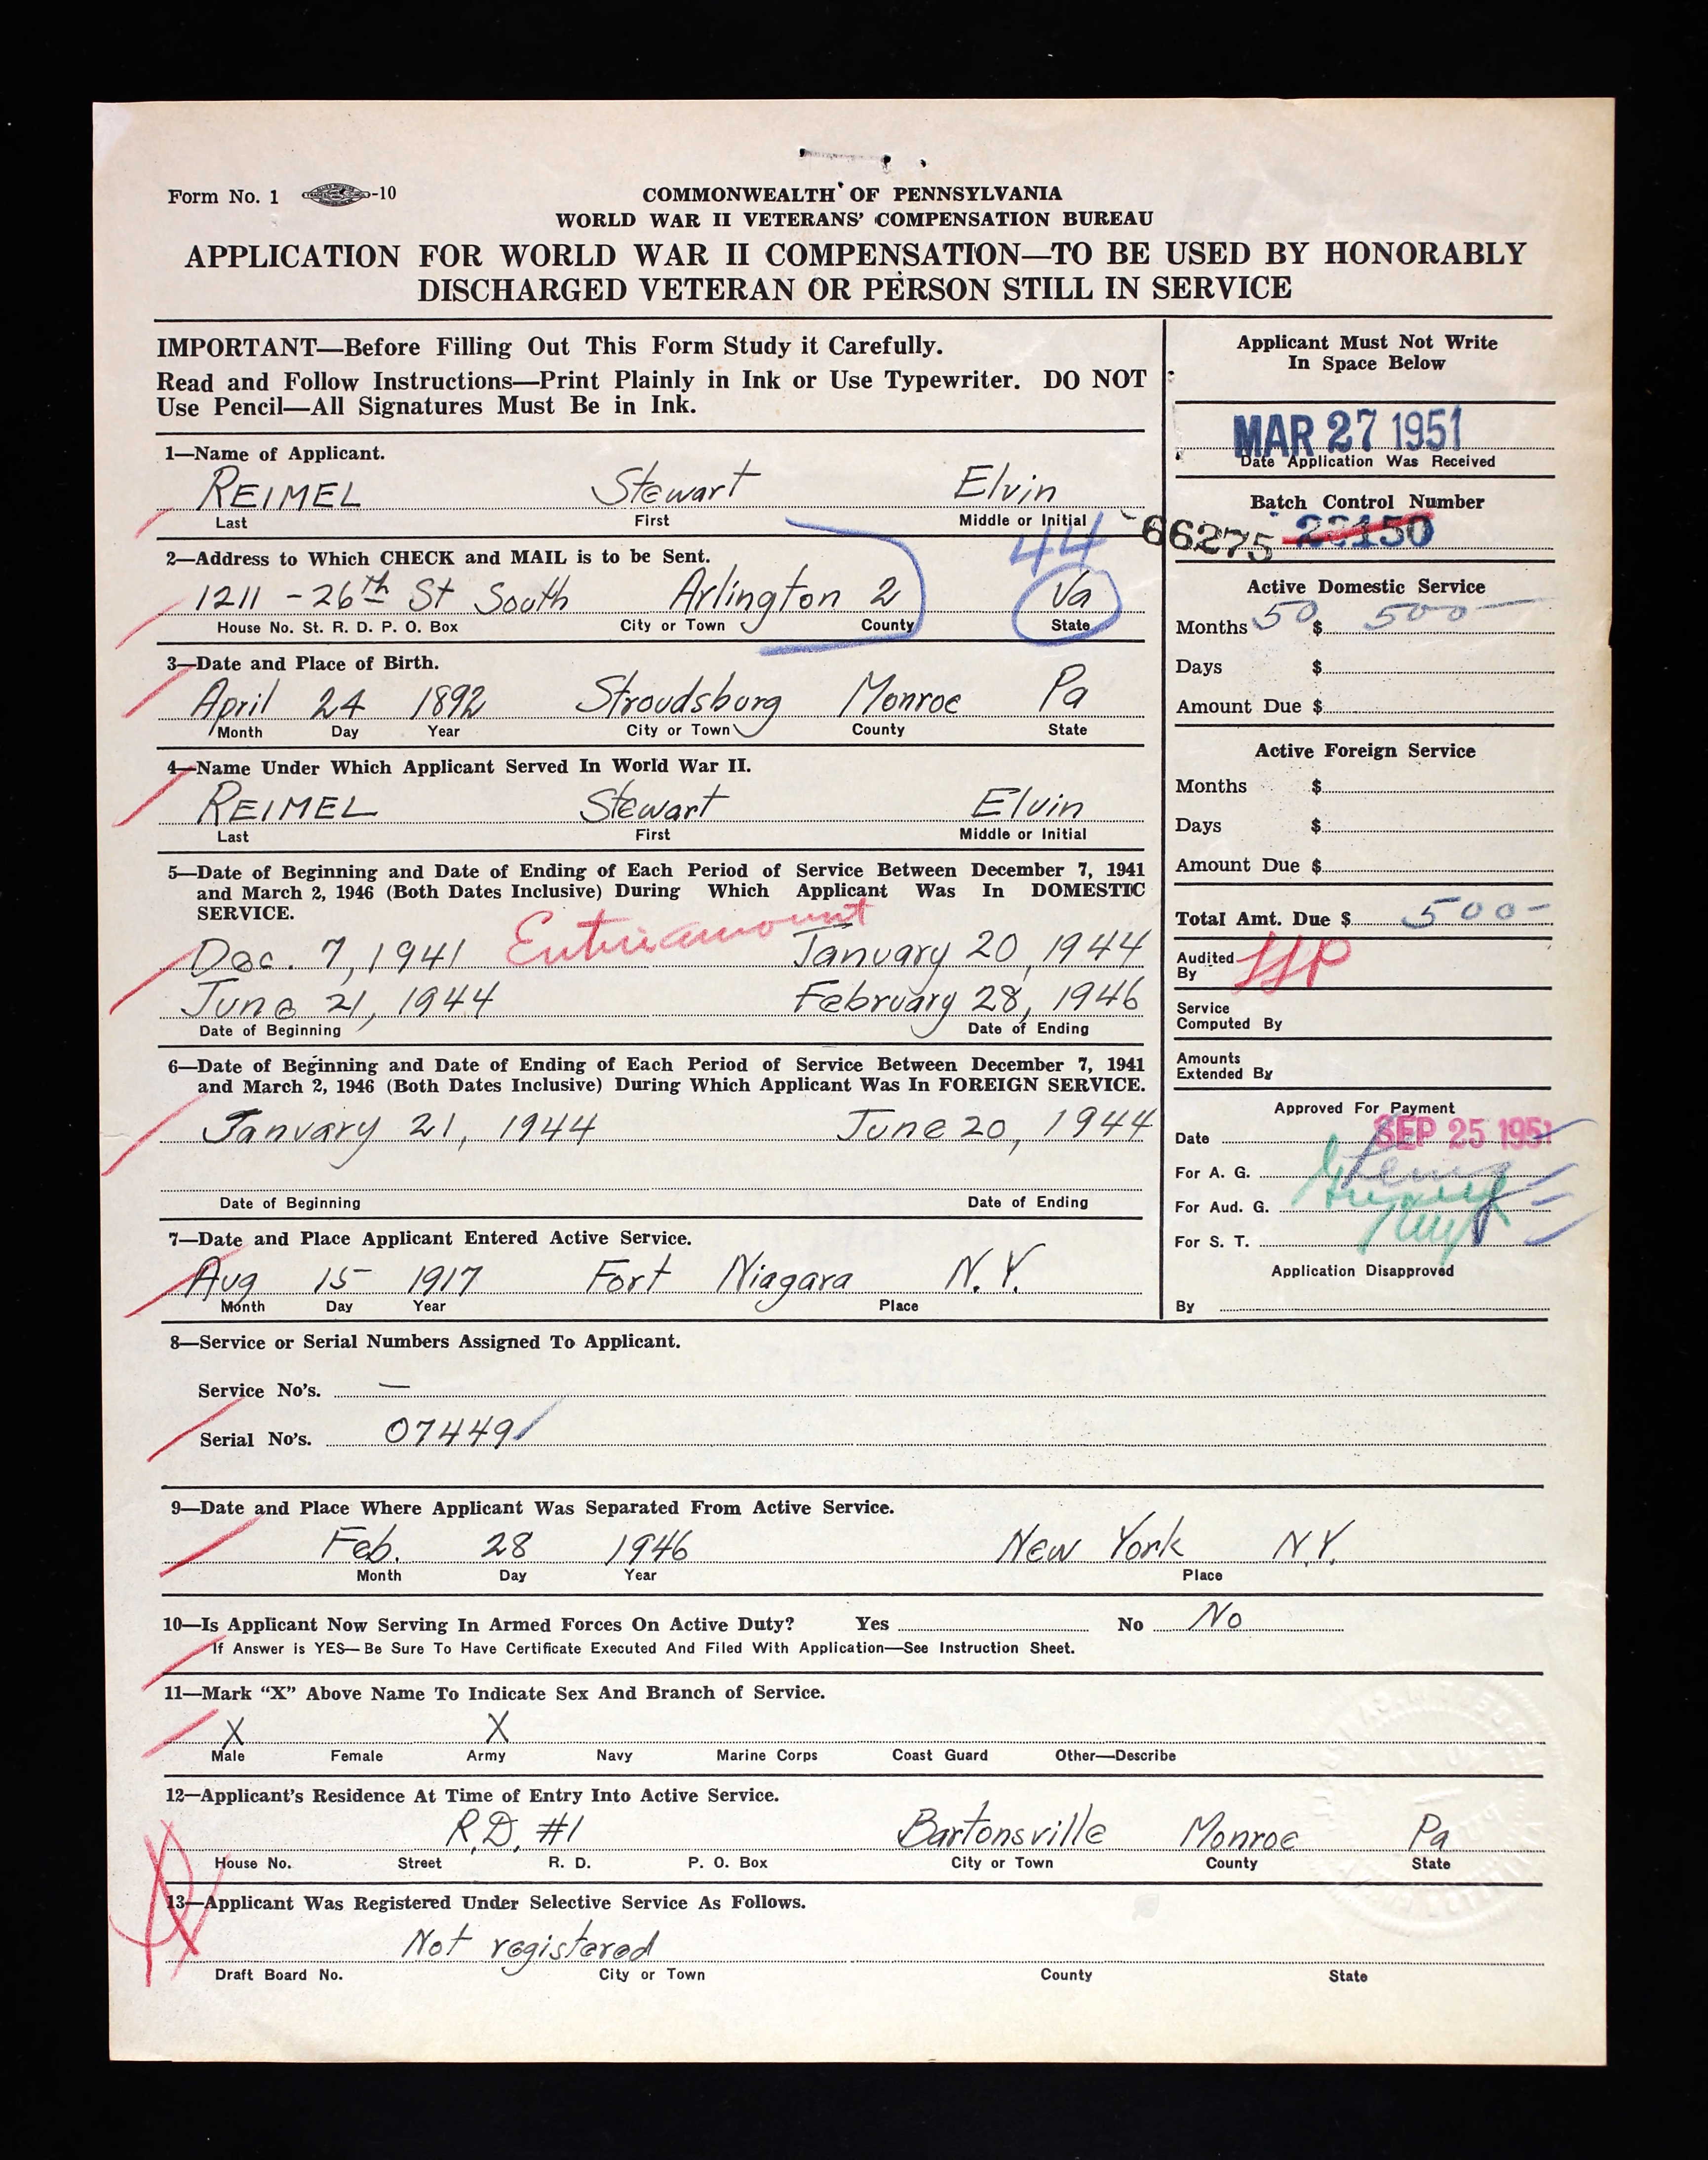 Form No. 1 -10
COMMONWEALTH OF PENNSYLVANIA
WORLD WAR II VETERANS' COMPENSATION BUREAU
APPLICATION FOR WORLD WAR II COMPENSATION—TO BE USED BY HONORABLY
DISCHARGED VETERAN OR PERSON STILL IN SERVICE
IMPORTANT—Before Filling Out This Form Study it Carefully.
Read and Follow Instructions—Print Plainly in Ink or Use Typewriter. DO NOT
Use Pencil—All Signatures Must Be in Ink.
1—Name of Applicant.
REIMEL Stewart Elvin
Last First Middle or Initial
2—Address to Which CHECK and MAIL is to be Sent.
44
1211 - 26th St South Arlington 2 Va
House No. St. R. D. P. O. Box City or Town County State
3—Date and Place of Birth.
April 24 1892 Stroudsburg Monroe Pa
Month Day Year City or Town County State
4—Name Under Which Applicant Served In World War II.
REIMEL Stewart Elvin
Last First Middle or Initial
5—Date of Beginning and Date of Ending of Each Period of Service Between December 7, 1941
and March 2, 1946 (Both Dates Inclusive) During Which Applicant Was In DOMESTIC
SERVICE.
Entire amount
Dec. 7, 1941 January 20, 1944
June 21, 1944 February 28, 1946
Date of Beginning Date of Ending
6—Date of Beginning and Date of Ending of Each Period of Service Between December 7, 1941
and March 2, 1946 (Both Dates Inclusive) During Which Applicant Was In FOREIGN SERVICE.
January 21, 1944 June 20, 1944
Date of Beginning Date of Ending
7—Date and Place Applicant Entered Active Service.
Aug 15 1917 Fort Niagara N.Y.
Month Day Year Place
Applicant Must Not Write
In Space Below
MAR 27 1951
Date Application Was Received
Batch Control Number
66275 22150
Active Domestic Service
Months 50 $ 500-
Days $
Amount Due $
Active Foreign Service
Months $
Days $
Amount Due $
Total Amt. Due $ 500-
Audited
By
Service
Computed By
Amounts
Extended By
Approved For Payment
Date SEP 25 1951
For A. G.
For Aud. G.
For S. T.
Application Disapproved
By
8—Service or Serial Numbers Assigned To Applicant.
Service No's. —
Serial No's. 07449
9—Date and Place Where Applicant Was Separated From Active Service.
Feb. 28 1946 New York N.Y.
Month Day Year Place
10—Is Applicant Now Serving In Armed Forces On Active Duty? Yes No No
If Answer is YES—Be Sure To Have Certificate Executed And Filed With Application—See Instruction Sheet.
11—Mark "X" Above Name To Indicate Sex And Branch of Service.
X X
Male Female Army Navy Marine Corps Coast Guard Other—Describe
12—Applicant's Residence At Time of Entry Into Active Service.
R.D. #1 Bartonsville Monroe Pa
House No. Street R. D. P. O. Box City or Town County State
13—Applicant Was Registered Under Selective Service As Follows.
Not registered
Draft Board No. City or Town County State